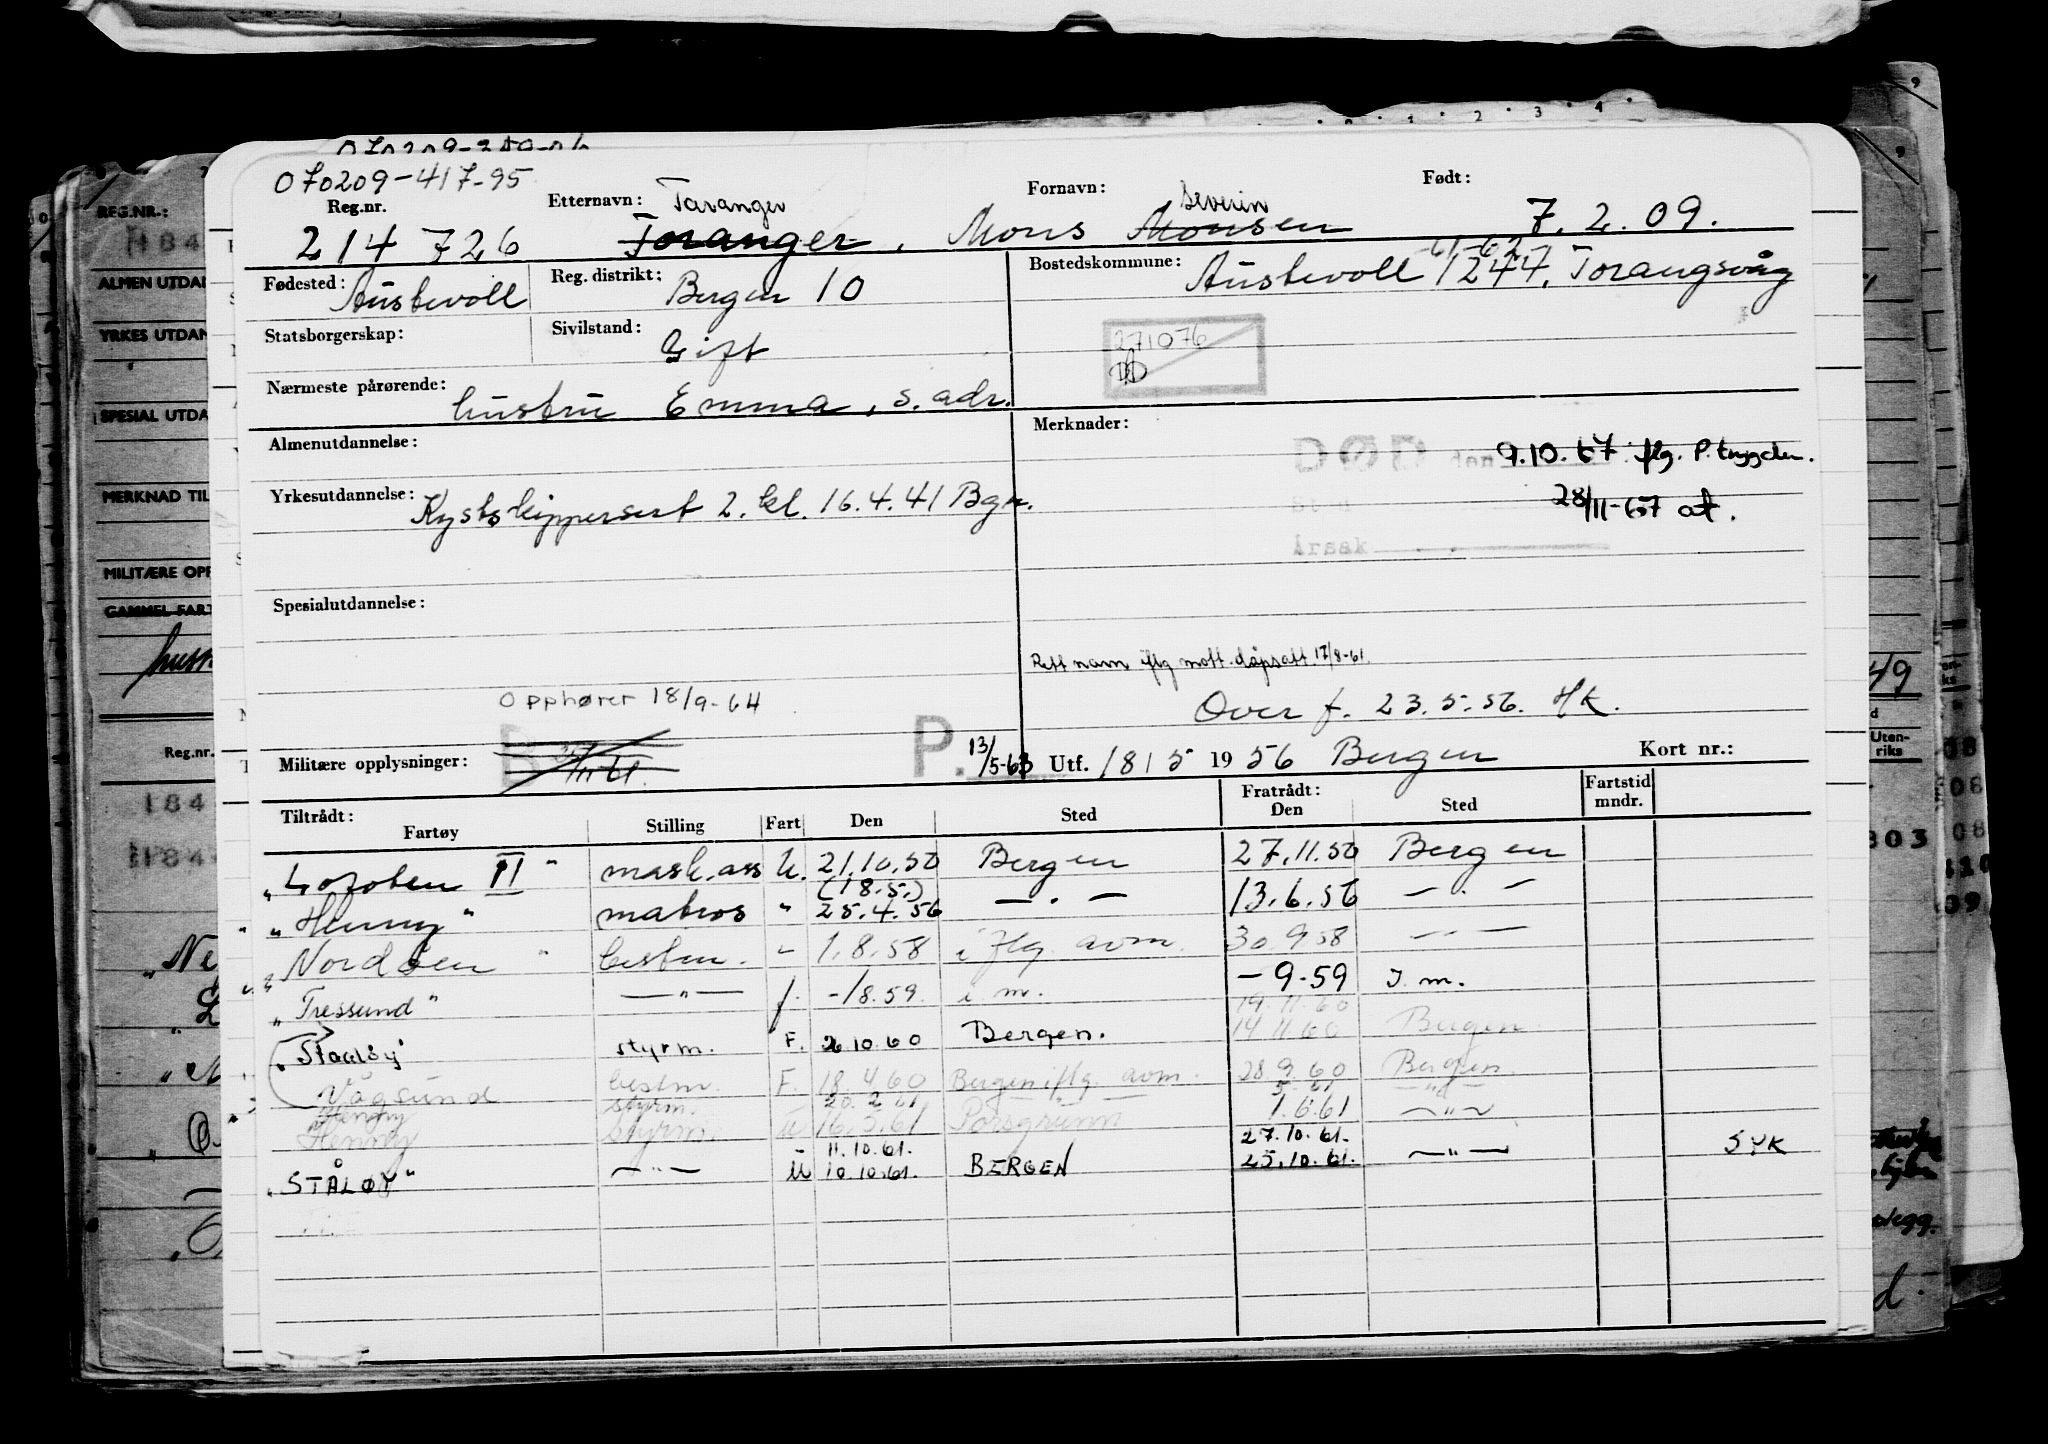 070209-417-95
Reg.nr. Etternavn: Taranger Fornavn: Severin Født:
214 726 Toranger, Mons Monsen 7.2.09.
Fødested: Austevoll Reg. distrikt: Bergen 10 Bostedskommune: Austevoll 1244, Torangsvåg
61-62
Statsborgerskap: Sivilstand: Gift
271076
Nærmeste pårørende: hustru Emma, s. adr.
Almenutdannelse: Merknader:
DØD den 9.10.67 iflg. P. trygden.
Yrkesutdannelse: Kystskippersert 2. kl. 16.4.41 Bgn.
Sted 28/11-67 at.
Årsak
Spesialutdannelse:
Rett navn iflg mott. dåpsatt. 17/8-61
Opphører 18/9-64
Over f. 23.5.56. HK.
Militære opplysninger: B /11-61. P. 13/5-63 Utf. 18/5 1956 Bergen Kort nr.:
Tiltrådt: Fartøy Stilling Fart Den Sted Fratrådt: Den Sted Fartstid mndr.
"Lofoten II" mask.ass U. 21.10.50 Bergen 27.11.50 Bergen
(18.5.)
"Henny" matros " 25.4.56 — . — 13.6.56 — . —
"Nordøen" bestm. " 1.8.58 i flg. avm. 30.9.58 — " —
"Tressund" — " — f. -/8.59. i m. -9-59 I. m.
19.11.60
"Staaløy" styrm. F. 2.10.60 Bergen. 14.11.60 Bergen
Vågsund bestm. F. 18.4.60 Bergen iflg. avm. 28.9.60 Bergen
Henny styrm. 20.2.61 5.61 — " —
Henny styrm. U 16.3.61 Porsgrunn 1.6.61 — " —
11.10.61. 27.10.61.
"STÅLØY" — " — U 10.10.61. BERGEN 25.10.61. — " — SYK
REG.NR.:
184
ALMEN UTDAN
YRKES UTDAN
SPESIAL UTDA
MERKNAD TIL
MILITÆRE OPP
GAMMEL FART
Reg.nr.
184
184
49
Uten-
riks
303
08
08
110
09